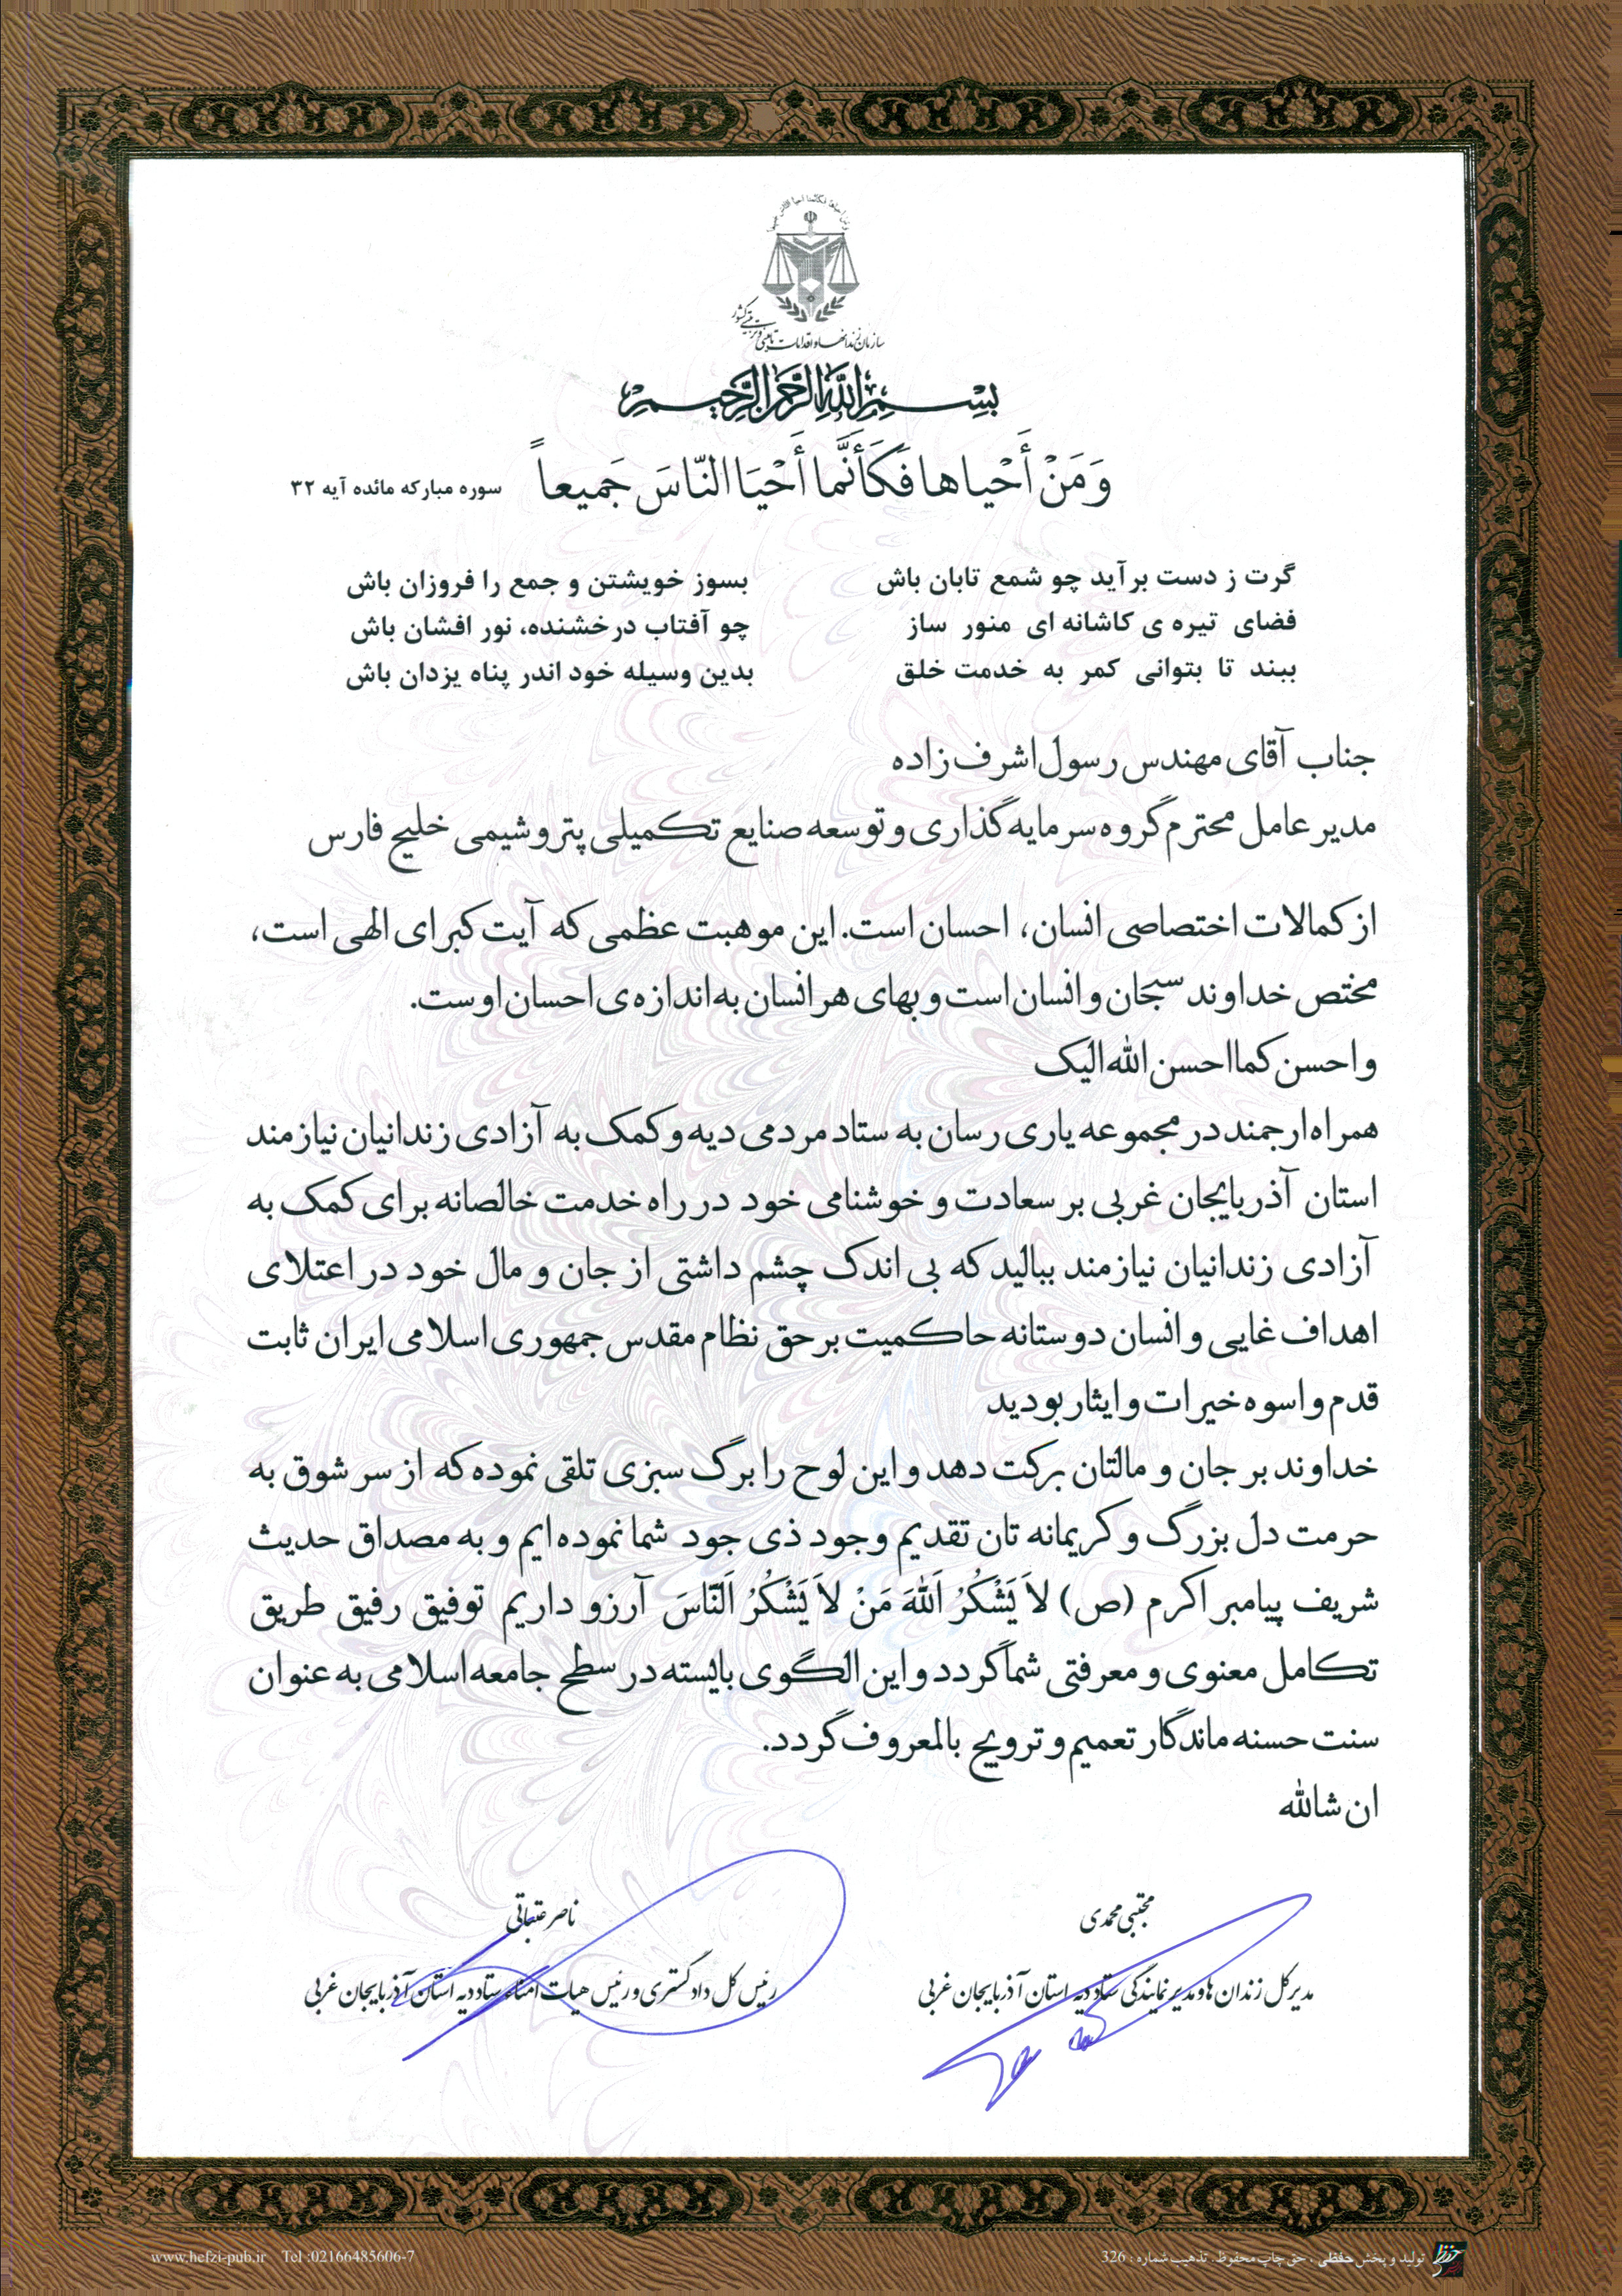 سازمان زندانها و اقدامات تامینی و تربیتی کشور
بسم الله الرحمن الرحیم
وَ مَنْ أَحْیاها فَکَأَنَّما أَحْیَا النّاسَ جَمیعاً سوره مبارکه مائده آیه ۳۲
گرت ز دست برآید چو شمع تابان باش بسوز خویشتن و جمع را فروزان باش
فضای تیره ی کاشانه ای منور ساز چو آفتاب درخشنده، نور افشان باش
ببند تا بتوانی کمر به خدمت خلق بدین وسیله خود اندر پناه یزدان باش
جناب آقای مهندس رسول اشرف زاده
مدیر عامل محترم گروه سرمایه گذاری و توسعه صنایع تکمیلی پتروشیمی خلیج فارس
از کمالات اختصاصی انسان، احسان است. این موهبت عظمی که آیت کبرای الهی است،
مختص خداوند سبحان و انسان است و بهای هر انسان به اندازه ی احسان اوست.
و احسن کما احسن الله الیک
همراه ارجمند در مجموعه یاری رسان به ستاد مردمی دیه و کمک به آزادی زندانیان نیازمند
استان آذربایجان غربی بر سعادت و خوشنامی خود در راه خدمت خالصانه برای کمک به
آزادی زندانیان نیازمند ببالید که بی اندک چشم داشتی از جان و مال خود در اعتلای
اهداف غایی و انسان دوستانه حاکمیت بر حق نظام مقدس جمهوری اسلامی ایران ثابت
قدم و اسوه خیرات و ایثار بودید
خداوند بر جان و مالتان برکت دهد و این لوح را برگ سبزی تلقی نموده که از سر شوق به
حرمت دل بزرگ و کریمانه تان تقدیم وجود ذی جود شما نموده ایم و به مصداق حدیث
شریف پیامبر اکرم (ص) لاَ یَشْکُرُ اَللهَ مَنْ لاَ یَشْکُرُ اَلنّاسَ آرزو داریم توفیق رفیق طریق
تکامل معنوی و معرفتی شما گردد و این الگوی بایسته در سطح جامعه اسلامی به عنوان
سنت حسنه ماندگار تعمیم و ترویج بالمعروف گردد.
ان شالله
مجتبی محمدی
مدیرکل زندان ها و مدیر نمایندگی ستاد دیه استان آذربایجان غربی
ناصر عتباتی
رئیس کل دادگستری و رئیس هیات امناء ستاد دیه استان آذربایجان غربی
تولید و پخش حفظی ، حق چاپ محفوظ. تذهیب شماره : 326
www.hefzi-pub.ir Tel :02166485606-7